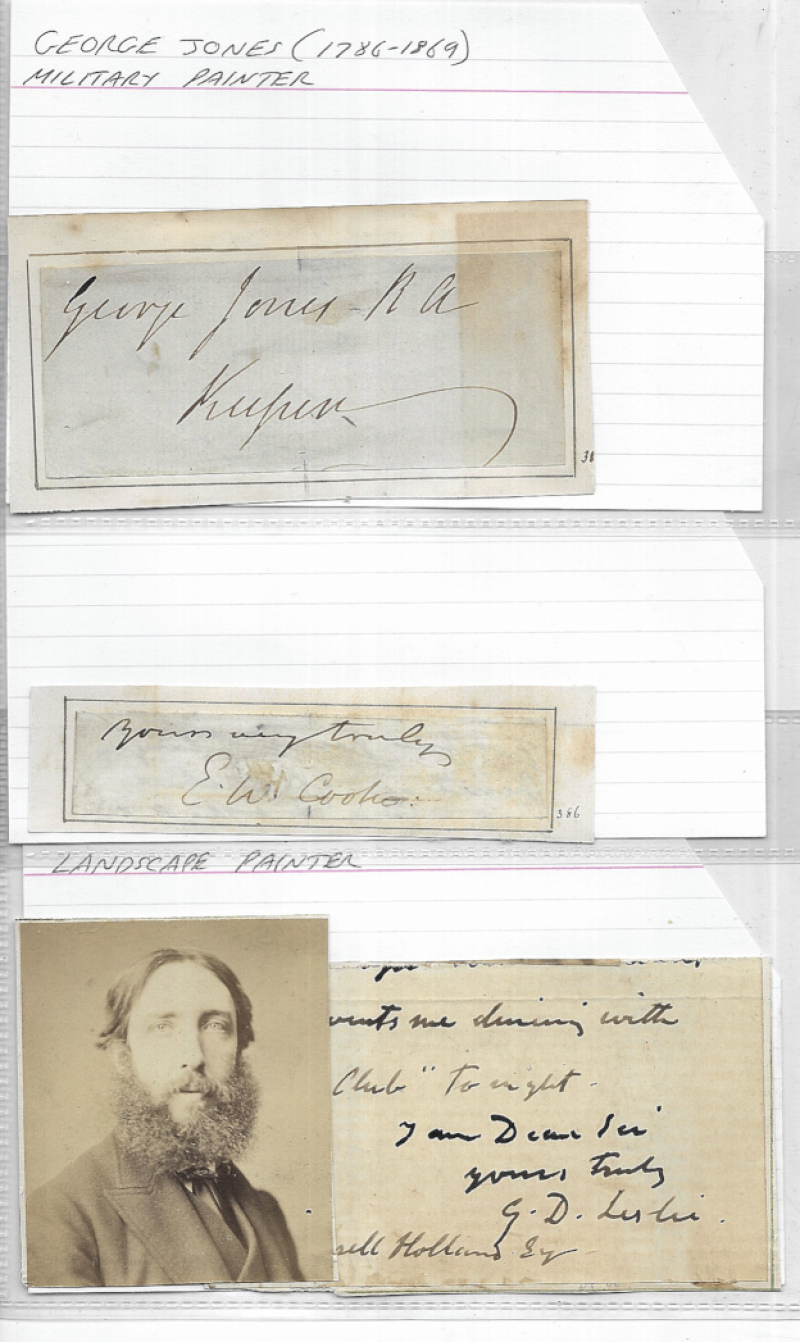 GEORGE JONES (1786-1869)
MILITARY PAINTER
George Jones - R A
Keeper
38
yours very truly
E. W. Cooke.
386
LANDSCAPE PAINTER
vents me dining with
Club" To night -
I am Dear Sir
yours truly
G. D. Leslie.
sell Holland Esq